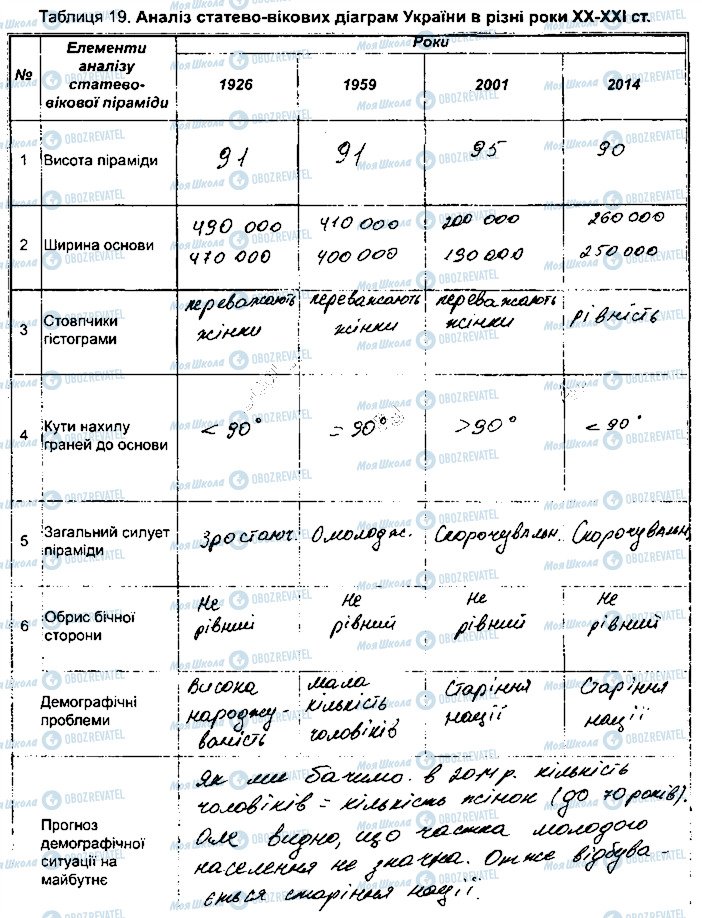 Таблиця 19. Аналіз статево-вікових діаграм України в різні роки XX-XXI ст.
№
Елементи
аналізу
статево-
вікової піраміди
Роки
1926
1959
2001
2014
1
Висота піраміди
91
91
95
90
2
Ширина основи
490 000
470 000
410 000
400 000
200 000
190 000
260 000
250 000
3
Стовпчики
гістограми
переважають
жінки
переважають
жінки
переважають
жінки
рівність
4
Кути нахилу
граней до основи
< 90°
= 90°
> 90°
< 90°
5
Загальний силует
піраміди
Зростаюч.
Омолодж.
Скорочувальн.
Скорочувальн
6
Обрис бічної
сторони
Не
рівний
Не
рівний
Не
рівний
Не
рівний
Демографічні
проблеми
Висока
народжу-
ваність
Мала
кількість
чоловіків
Старіння
нації
Старіння
нації
Прогноз
демографічної
ситуації на
майбутнє
Як ми бачимо. в 2014 р. кількість
чоловіків = кількість жінок (до 70 років).
Але видно, що частка молодого
населення не значна. Отже відбува-
ється старіння нації.
МояШкола OBOZREVATEL